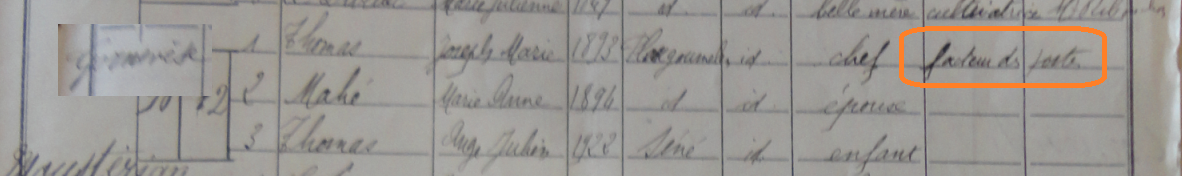 Marie Julienne 1847 id id belle mère cultivatrice
1 Thomas Joseph Marie 1893 id chef facteur des postes
2 Mahé Marie Anne 1894 id id épouse
3 Thomas Ange Julien 1922 Séné id enfant